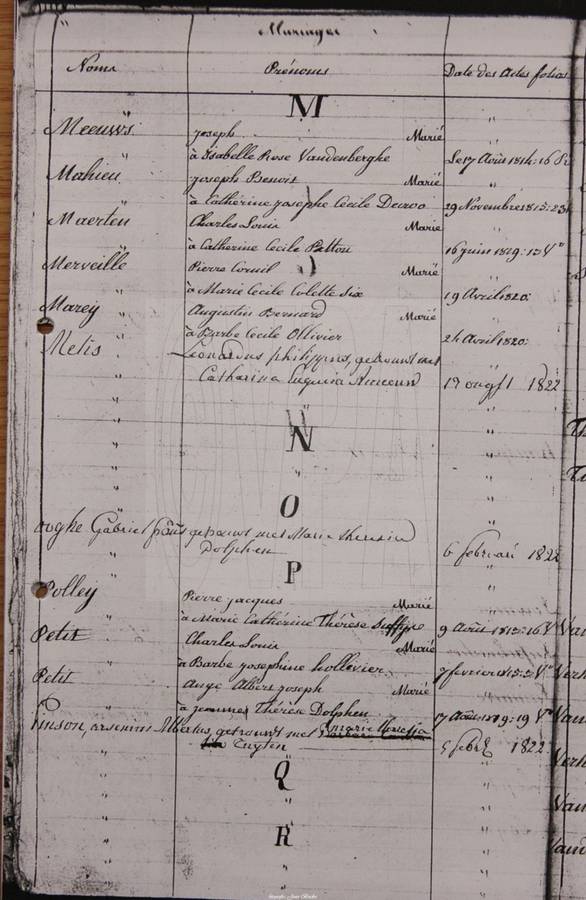 Mariages
Noms Prénoms Date des Actes folios
M
Meeuws joseph Marié
à Isabelle Rose Vandenberghe Le 17 Août 1814: 16
Mahieu joseph Benoit Marié
à Cathérine josephe Cecile Decroo 29 Novembre 1815: 23
Maerten Charles Louis Marié
à Catherine Cecile Pattou 16 juin 1819: 13 V°
Merveille Pierre Corneil Marié
à Marie Cecile Colette Six 19 Avril 1820:
Marey Augustin Bernard Marié
à Barbe Cecile Ollivier 24 Avril 1820:
Metis Leonardus philippus, getrouwt met
Catharina Eugenia 1822
N
O
ooghe Gabriel getrouwt met Marie theresia
Dolphen 6 februari 1822
P
Polley Pierre jacques Marié
à Marie Cathérine Thérèse 9 Août 1815: 16 V°
Petit Charles Louis Marié
à Barbe josephine hollivier 7 fevrier 1815: 5 V°
Petit Ange Albert joseph Marié
à jeanne Thérèse Dolphen 17 Août 1819: 19 V°
pinson, arsenius Albertus, getrouwt met marie theresia
Tuyten 5 feb 1822
Q
R